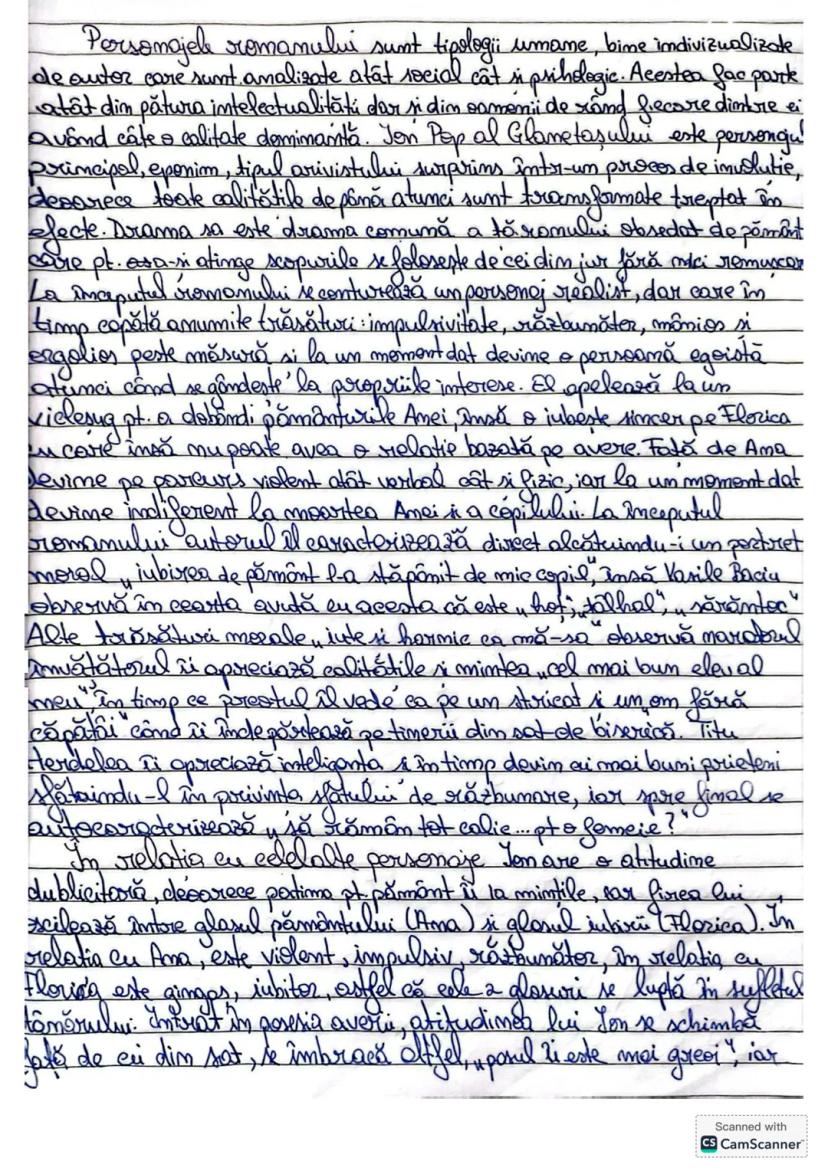 Personajele romanului sunt tipologii umane, bine individualizate
de autor care sunt analizate atât social cât și psihologic. Acestea fac parte
atât din pătura intelectualității dar și din oamenii de rând fiecare dintre ei
având câte o calitate dominantă. Ion Pop al Glanetașului este personaju
principal, eponim, tipul arivistului surprins într-un proces de involuție,
deoarece toate calitățile de până atunci sunt transformate treptat în
efecte. Drama sa este drama comună a țăranului obsedat de pământ
care pt. asa-și atinge scopurile se folosește de cei din jur fără nici remușcar
La începutul romanului se conturează un personaj realist, dar care în
timp capătă anumite trăsături: impulsivitate, răzbunător, mânios și
orgolios peste măsură și la un moment dat devine o persoană egoistă
atunci când se gândește la propriile interese. El apelează la un
vicleșug pt. a dobândi pământurile Anei, însă o iubește sincer pe Florica
cu care însă nu poate avea o relație bazată pe avere. Față de Ana
devine pe parcurs violent atât verbal cât și fizic, iar la un moment dat
devine indiferent la moartea Anei și a copilului. La începutul
romanului autorul îl caracterizează direct alcătuindu-i un portret
moral „iubirea de pământ l-a stăpânit de mic copil", însă Vasile Baciu
observă în cearta avută cu acesta că este „hoț", „tâlhal", „sărăntoc"
Alte trăsături morale „iute și harnic ca mă-sa" observă naratorul
învățătorul îi apreciază calitățile și mintea „cel mai bun elev al
meu", în timp ce preotul îl vede ca pe un stricat și un „om fără
căpătâi" când îi îndepărtează pe tinerii din sat de biserică. Titu
Herdelea îi apreciază inteligența și în timp devin cei mai buni prieteni
sfătuindu-l în privința sfatului de răzbunare, iar spre final se
autocaracterizează „să rămân tot calic... pt o femeie?"
În relația cu celelalte personaje Ion are o atitudine
dublicitară, deoarece patima pt. pământ îi ia mințile, iar firea lui
oscilează între glasul pământului (Ana) și glasul iubirii (Florica). În
relația cu Ana, este violent, impulsiv, răzbunător, în relația cu
Florica este gingaș, iubitor, astfel că cele 2 glasuri se luptă în sufletul
tânărului. Intrat în posesia averii, atitudinea lui Ion se schimbă
față de cei din sat, se îmbracă altfel, „pasul îi este mai greoi", iar
Scanned with
CS CamScanner